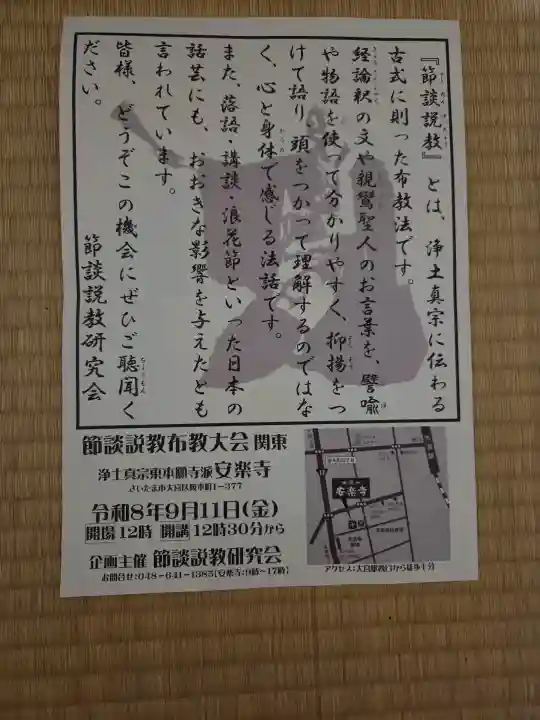 『節談説教』とは、浄土真宗に伝わる
古式に則った布教法です。
経論釈の文や親鸞聖人のお言葉を、譬喩
や物語を使って分かりやすく、抑揚をつ
けて語り、頭をつかって理解するのではな
く、心と身体で感じる法話です。
また、落語・講談・浪花節といった日本の
話芸にも、おおきな影響を与えたとも
言われています。
皆様、どうぞこの機会にぜひご聴聞く
ださい。
節談説教研究会
節談説教布教大会 関東
浄土真宗東本願寺派 安楽寺
さいたま市大宮区桜木町1-377
令和8年9月11日(金)
開場 12時 開講 12時30分から
企画主催 節談説教研究会
お問合せ:048-641-1385[安楽寺:9時~17時]
安楽寺
アクセス:大宮駅西口から徒歩十分